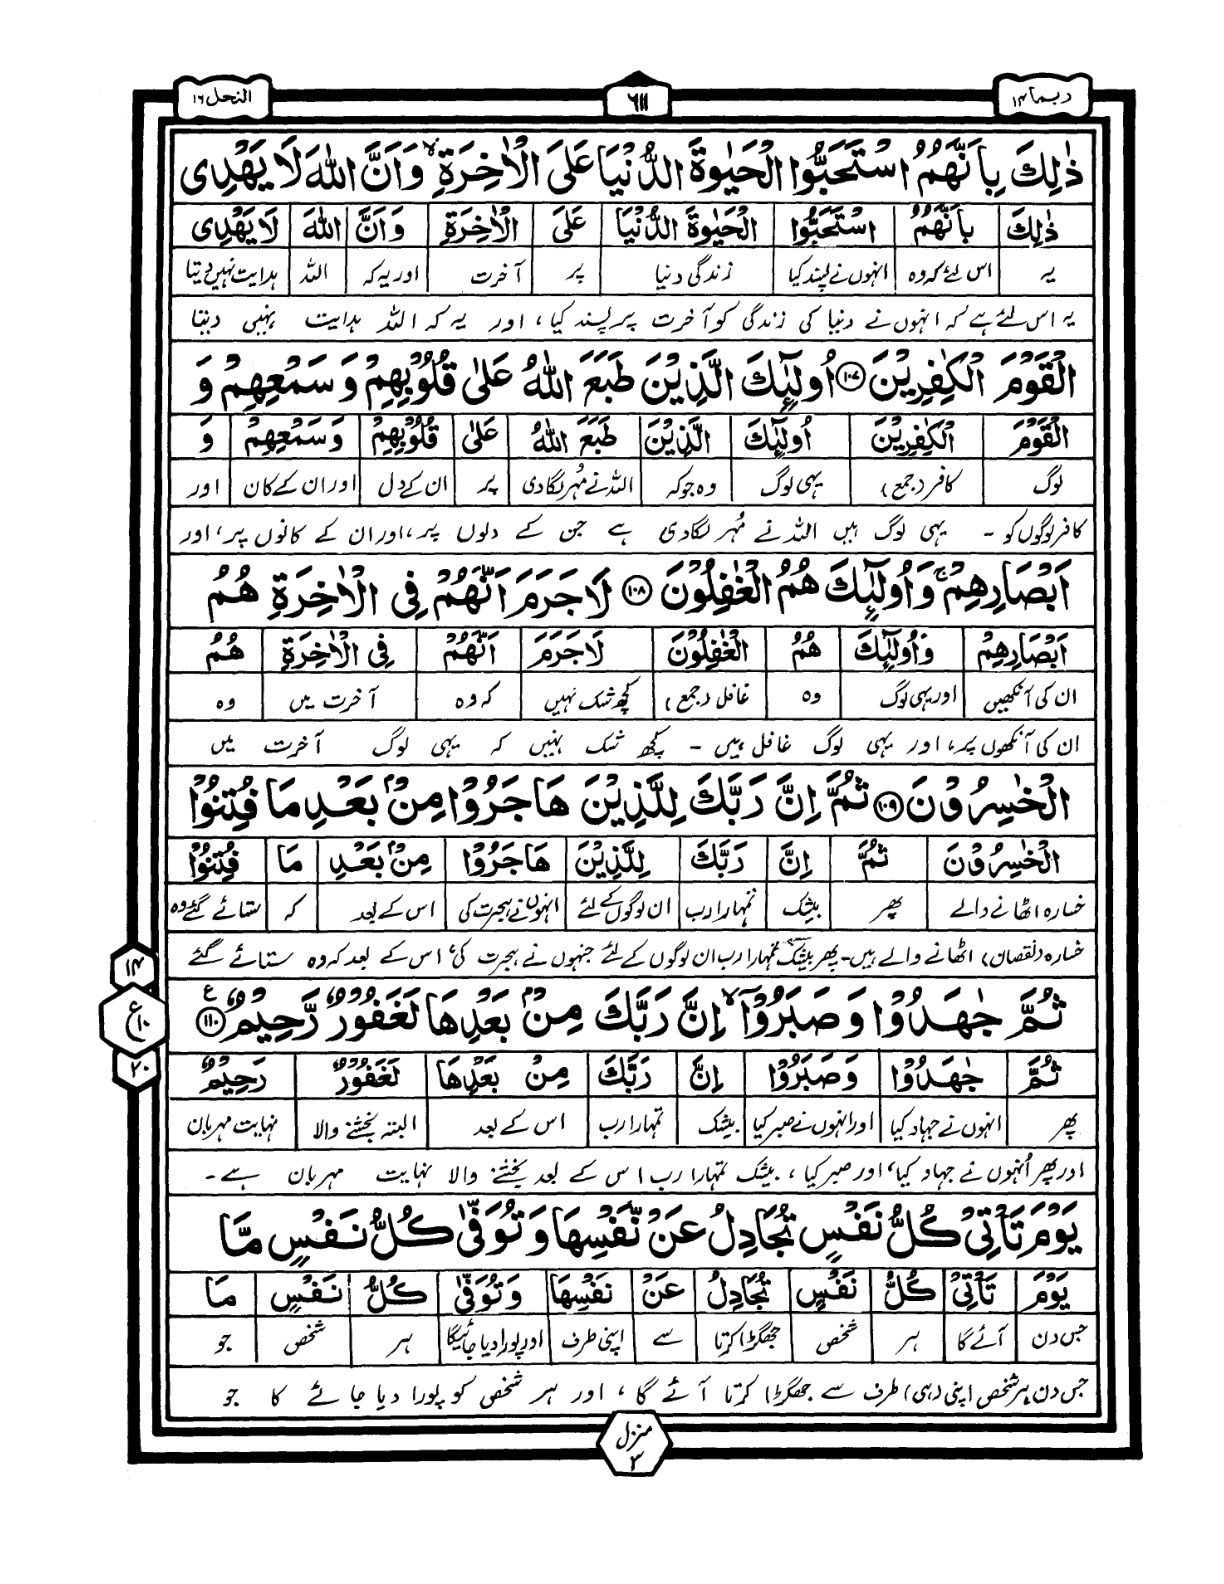 ربما ۱۴
۶۱۱
النحل ۱۶
ذٰلِكَ بِاَنَّهُمُ اسْتَحَبُّوا الْحَيٰوةَ الدُّنْيَا عَلَى الْاٰخِرَةِ ۙ وَاَنَّ اللّٰهَ لَا يَهْدِى
ذٰلِكَ بِاَنَّهُمُ اسْتَحَبُّوا الْحَيٰوةَ الدُّنْيَا عَلَى الْاٰخِرَةِ وَاَنَّ اللّٰهَ لَا يَهْدِى
یہ اس لئے کہ وہ انہوں نے پسند کیا زندگی دنیا پر آخرت اور یہ کہ اللہ ہدایت نہیں دیتا
یہ اس لئے ہے کہ انہوں نے دنیا کی زندگی کو آخرت پر پسند کیا، اور یہ کہ اللہ ہدایت نہیں دیتا
الْقَوْمَ الْكٰفِرِيْنَ ۱۰۷ اُولٰٓئِكَ الَّذِيْنَ طَبَعَ اللّٰهُ عَلٰى قُلُوْبِهِمْ وَسَمْعِهِمْ وَ
الْقَوْمَ الْكٰفِرِيْنَ اُولٰٓئِكَ الَّذِيْنَ طَبَعَ اللّٰهُ عَلٰى قُلُوْبِهِمْ وَسَمْعِهِمْ وَ
لوگ کافر (جمع) یہی لوگ وہ جو کہ اللہ نے مُہر لگادی پر ان کے دل اور ان کے کان اور
کافر لوگوں کو - یہی لوگ ہیں اللہ نے مُہر لگادی ہے جن کے دلوں پر، اور ان کے کانوں پر، اور
اَبْصَارِهِمْ ۚ وَاُولٰٓئِكَ هُمُ الْغٰفِلُوْنَ ۱۰۸ لَا جَرَمَ اَنَّهُمْ فِى الْاٰخِرَةِ هُمُ
اَبْصَارِهِمْ وَاُولٰٓئِكَ هُمُ الْغٰفِلُوْنَ لَا جَرَمَ اَنَّهُمْ فِى الْاٰخِرَةِ هُمُ
ان کی آنکھیں اور یہی لوگ وہ غافل (جمع) کچھ شک نہیں کہ وہ آخرت میں وہ
ان کی آنکھوں پر، اور یہی لوگ غافل ہیں - کچھ شک نہیں کہ یہی لوگ آخرت میں
الْخٰسِرُوْنَ ۱۰۹ ثُمَّ اِنَّ رَبَّكَ لِلَّذِيْنَ هَاجَرُوْا مِنْۢ بَعْدِ مَا فُتِنُوْا
الْخٰسِرُوْنَ ثُمَّ اِنَّ رَبَّكَ لِلَّذِيْنَ هَاجَرُوْا مِنْۢ بَعْدِ مَا فُتِنُوْا
خسارہ اٹھانے والے پھر بیشک تمہارا رب ان لوگوں کے لئے انہوں نے ہجرت کی اس کے بعد کہ ستائے گئے وہ
خسارہ (نقصان) اٹھانے والے ہیں - پھر بیشک تمہارا رب ان لوگوں کے لئے جنہوں نے ہجرت کی، اس کے بعد کہ وہ ستائے گئے
ثُمَّ جٰهَدُوْا وَصَبَرُوْٓا ۙ اِنَّ رَبَّكَ مِنْۢ بَعْدِهَا لَغَفُوْرٌ رَّحِيْمٌ ۱۱۰ ع
ثُمَّ جٰهَدُوْا وَصَبَرُوْٓا اِنَّ رَبَّكَ مِنْۢ بَعْدِهَا لَغَفُوْرٌ رَحِيْمٌ
پھر انہوں نے جہاد کیا اور انہوں نے صبر کیا بیشک تمہارا رب اس کے بعد البتہ بخشنے والا نہایت مہربان
اور پھر اُنہوں نے جہاد کیا، اور صبر کیا، بیشک تمہارا رب اس کے بعد بخشنے والا نہایت مہربان ہے -
يَوْمَ تَاْتِىْ كُلُّ نَفْسٍ تُجَادِلُ عَنْ نَّفْسِهَا وَتُوَفّٰى كُلُّ نَفْسٍ مَّا
يَوْمَ تَاْتِىْ كُلُّ نَفْسٍ تُجَادِلُ عَنْ نَفْسِهَا وَتُوَفّٰى كُلُّ نَفْسٍ مَا
جس دن آئے گا ہر شخص جھگڑا کرتا سے اپنی طرف اور پورا دیا جائیگا ہر شخص جو
جس دن ہر شخص اپنی (ہی) طرف سے جھگڑا کرتا آئے گا، اور ہر شخص کو پورا دیا جائے گا جو
۱۴
ع ۱۰
۲۰
منزل
۳